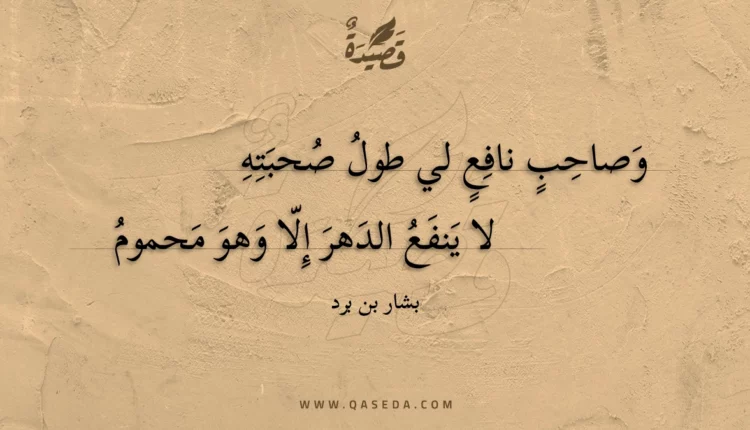 قَصِيْدَةٌ
وَصاحِبٍ نافِعٍ لي طولُ صُحبَتِهِ
لا يَنفَعُ الدَهرَ إِلّا وَهوَ مَحمومُ
بشار بن برد
WWW.QASEDA.COM